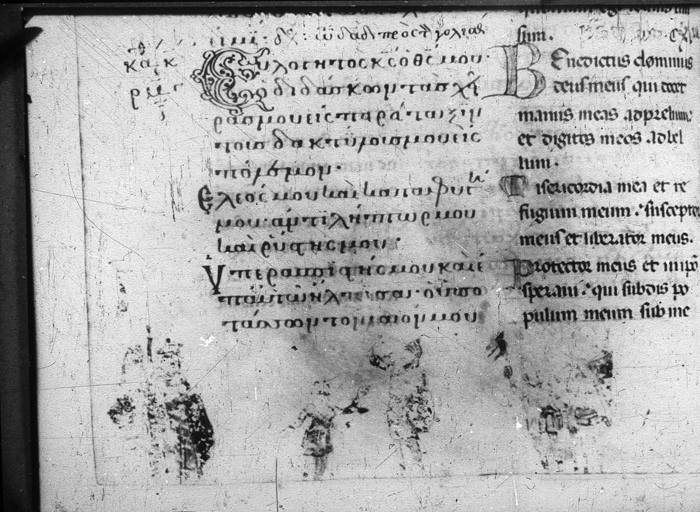 Εὐλογητὸς κς ὁ θς μου
ὁ διδάσκων τὰς χεῖ
ρας μου εἰς παράταξιν
τοὺς δακτύλους μου εἰς
πόλεμον
Ἔλεός μου καὶ καταφυγή
μου ἀντιλήπτωρ μου
καὶ ῥύστης μου
Ὑπερασπιστής μου καὶ ἐ
π αὐτῷ ἤλπισα ὁ ὑπο
τάσσων τὸν λαόν μου
sum.
Benedictus dominus
deus meus qui docet
manus meas ad prelium
et digitos meos ad bel
lum.
Misericordia mea et re
fugium meum. susceptor
meus et liberator meus.
Protector meus et in ipso
speravi. qui subdis po
pulum meum sub me